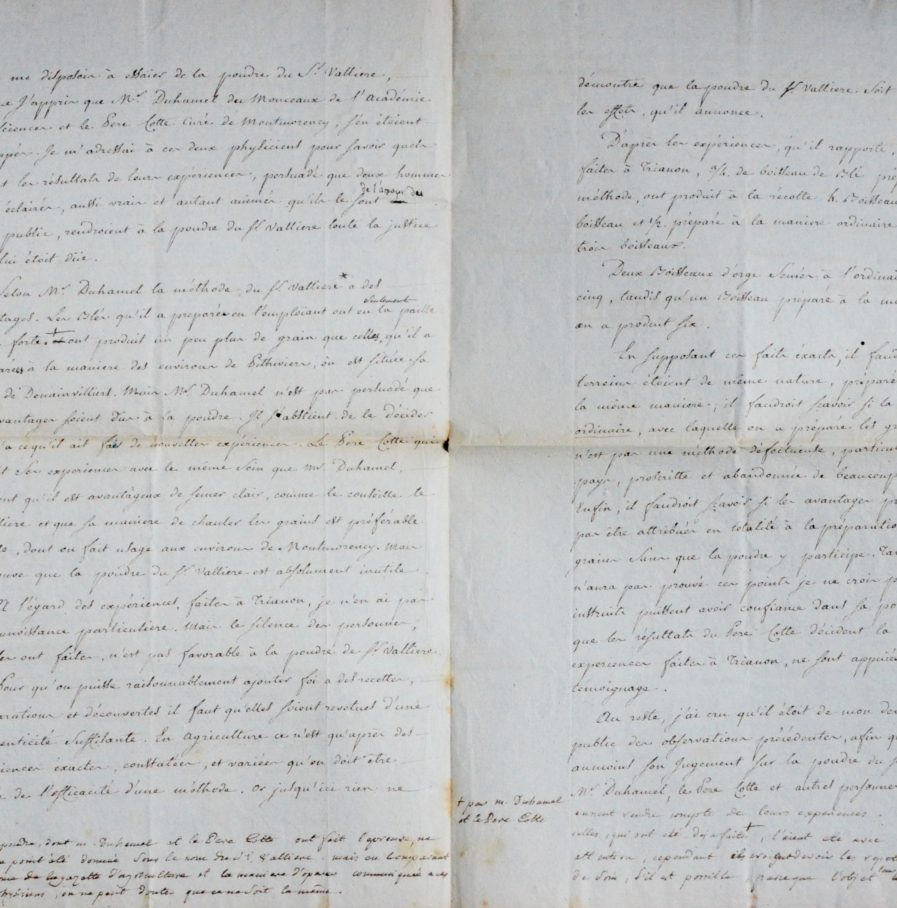 me disposoir à essaier de la poudre du Sr. Valliere,
J'appris que Mr. Duhamel du Monceaux de l'Académie
sciences et le Pere Cotte Curé de Montmorency, s'en étoient
Je m'adressai à ces deux physiciens pour savoir quels
les résultats de leurs expériences, persuadé que deux hommes
éclairés, aussi vrais et autant animés qu'ils le sont de l'amour du
public, rendroient à la poudre du Sr. Valliere toute la justice
lui étoit due.
Selon Mr. Duhamel la méthode du Sr. Valliere * a des
Les blés qu'il a préparés en l'emploiant ont eu seulement la paille
forte + ont produit un peu plus de grain que celles, qu'il a
à la maniere des environs de Pithiviers, où est située sa
de Denainvilliers. Mais Mr. Duhamel n'est pas persuadé que
avantages soient dus à la poudre. Il s'abstient de le décider
à ce qu'il ait fait de nouvelles expériences. Le Pere Cotte qui
ses expériences avec le même soin que mr. Duhamel,
qu'il est avantageux de semer clair, comme le conseille le
et que sa maniere de chauler les grains est préférable
dont on fait usage aux environs de Montmorency. Mais
que la poudre du Sr. Valliere est absolument inutile
A l'égard des expériences, faites à Trianon, je n'en ai pas
connoissance particuliere. Mais le silence des personnes,
ont faites, n'est pas favorable à la poudre de Sr. Valliere.
Pour qu'on puisse raisonnablement ajouter foi à des recettes,
et découvertes il faut qu'elles soient revetues d'une
authenticité suffisante. En agriculture ce n'est qu'après des
expériences exactes, constatées, et variées qu'on doit être
de l'efficacité d'une méthode. Or jusqu'ici rien ne
poudre, dont m. Duhamel et le Pere Cotte ont fait l'epreuve, ne
point été donnée sous le nom du Sr. Valliere. mais en
de la gazette d'agriculture et la maniere d'operer communiquée a ces
on ne peut douter que ce ne soit la même.
+ par m. Duhamel
et le Pere Cotte
démontre que la poudre du Sr Valliere soit
les effets, qu'il annonce.
D'après les expériences, qu'il rapporte,
faites à Trianon, de boisseau de blé
méthode, ont produit à la récolte
boisseau et 1/2 préparé à la maniere ordinaire
trois boisseaux.
Deux Boisseaux d'orge semés à l'ordinaire
cinq, tandis qu'un Boisseau préparé à la
en a produit six.
En supposant ces faits éxacts, il
terreins étoient de même nature,
la même maniere; il faudroit sçavoir si la
ordinaire, avec laquelle on a préparé les
n'est pas une méthode défectueuse,
pays, proscritte et abandonnée de beaucoup
Enfin, il faudroit sçavoir si les avantages
pas être attribués en totalité à la préparation
grains sans que la poudre y participe.
n'aura pas prouvé ces points je ne crois
instruits puissent avoir confiance dans sa
que les résultats du Pere Cotte décident la
expériences faites à Trianon, ne sont
témoignage.
Au reste, j'ai cru qu'il étoit de mon
public des observations précédentes, afin
son Jugement sur la poudre du
Mr. Duhamel, le Pere Cotte et autres
rendu compte de leurs expériences.
qui ont été déja faites +, l'aient été avec
attention, cependant
de soin, s'il est possible, presque l'objet